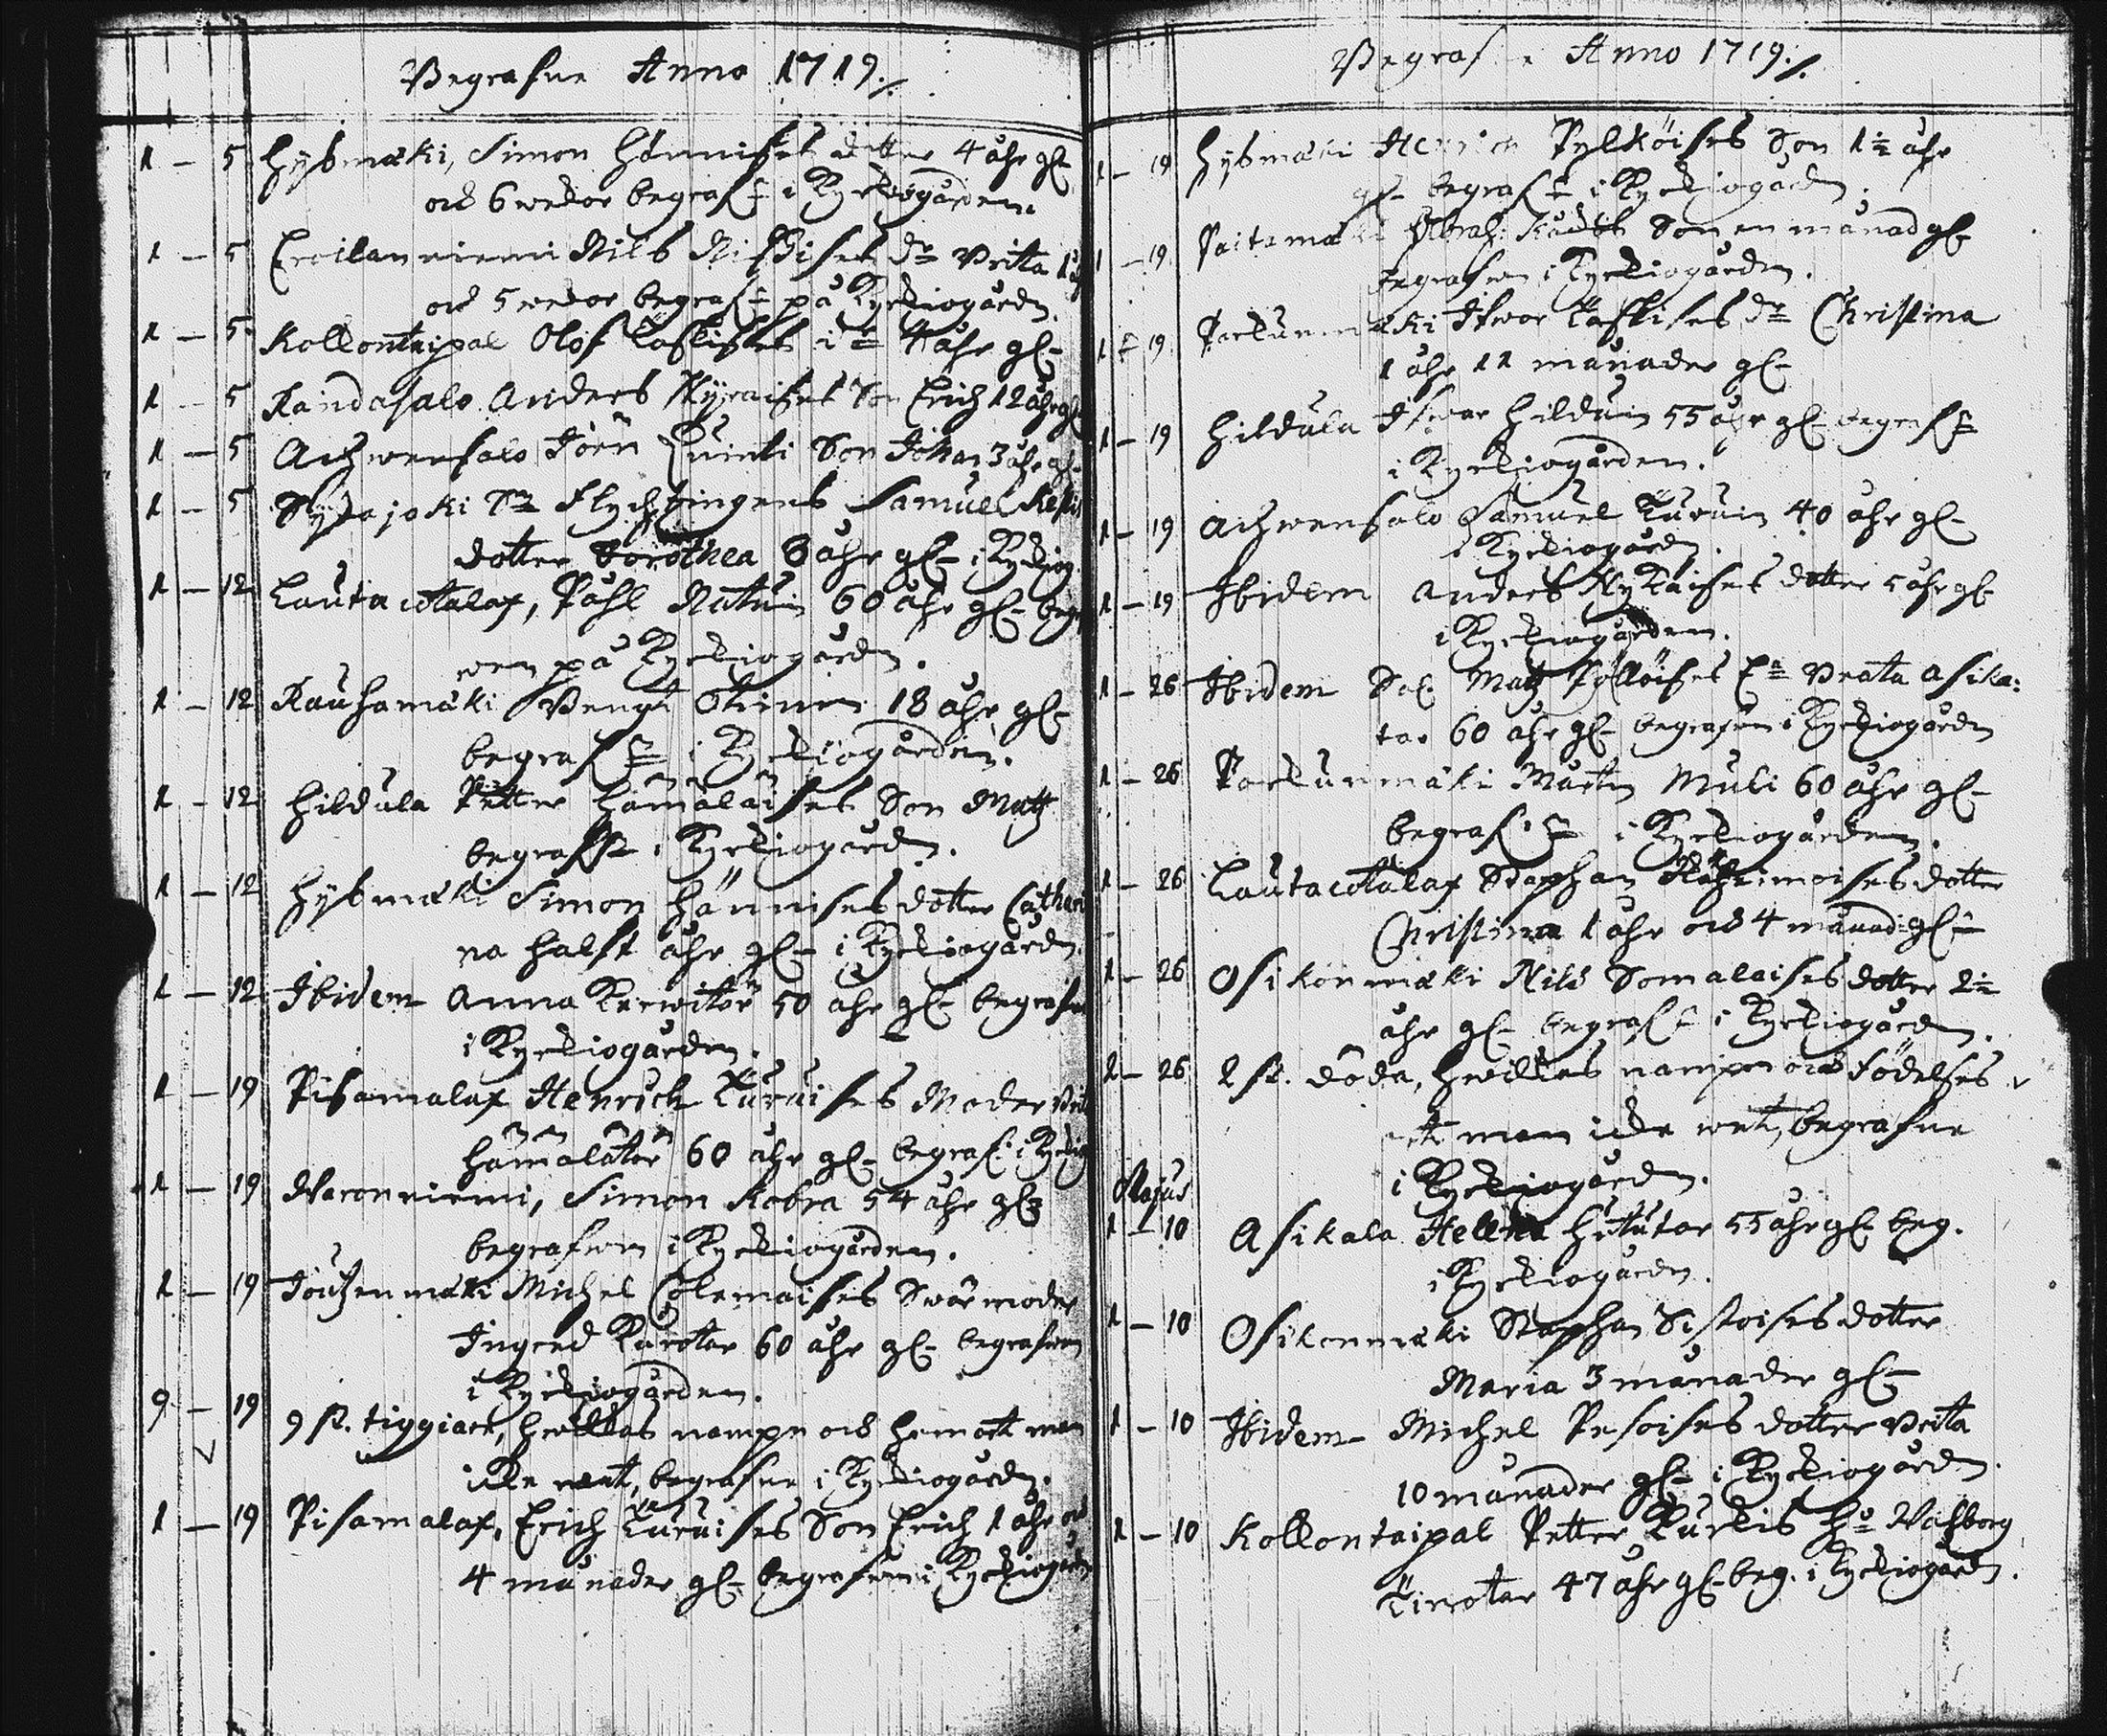 Begrafne Anno 1719./.
1 – 5 Hyßmäki, Simon Hännises dotter 4 åhr gl
och 6 wekor begraf:n i Kyrkiogården
1 – 5 niemi Nils dr Brita 1
och 5 wekor begraf:n på Kyrkiogården.
1 – 5 Kollontaipal Olof 4 åhr gl
1 – 5 Randasalo Anders Son Erich 12 åhr gl
1 – 5 Achwensalo Jörn Son Johan 3 åhr gl
1 – 5 Syväjoki Flychtingens Samuel
dotter Dorothea 8 åhr gl i Kyrkiog.
1 – 12 Lautacotalax, Påhl Natuin 60 åhr gl begr
wen på Kyrkiogården.
1 – 12 Rauhamäki Bengt Otinen 18 åhr gl
begraf:n i Kyrkiogården.
1 – 12 Hildula Petter Hämäläises Son Matz
i Kyrkiogården.
1 – 12 Hyßmäki Simon Hännises dotter Cathari
na halft åhr gl i Kyrkiogården.
1 – 12 Ibidem Anna 50 åhr gl begrafn
i Kyrkiogården.
1 – 19 Pisamalax Henrich Kuruises Moder
Hämälätär 60 åhr gl begraf: i Kyrkiog
1 – 19 Varonniemi, Simon Kobra 54 åhr gl
begrafwen i Kyrkiogården.
1 – 19 Joutzenmäki Michel Colemaises Swärmoder
Ingred 60 åhr gl begrafwen
i Kyrkiogården.
9 – 19 9 st. tiggiare, hwilkas nampn och hemort man
icke weet, begrafne i Kyrkiogården.
1 – 19 Pisamalax, Erich Kuruises Son Erich 1 åhr och
4 månader gl begrafwen i Kyrkiogården
Begrafne Anno 1719./.
1 – 19 Hyßmäki Henrich Pylköises Son 1½ åhr
gl begraf:n i Kyrkiogården.
1 – 19 Abrah: Son en månad gl
begrafwen i Kyrkiogården.
1 – 19 Porkunmäki Ifwar dr Christina
1 åhr 11 månader gl
1 – 19 Hildula Ifwar Hilduin 55 åhr gl begraf:n
i Kyrkiogården.
1 – 19 Achwensalo Samuel Kuruin 40 åhr gl
i Kyrkiogården.
1 – 19 Ibidem Anders Nykäises dotter 5 åhr gl
i Kyrkiogården.
1 – 26 Ibidem Sal. Matz Pöllöises E:a Beata Asika:
tar 60 åhr gl begrafwen i Kyrkiogården
1 – 26 Porkunmäki Mårten Muli 60 åhr gl
begraf:n i Kyrkiogården.
1 – 26 Lautacotalax Staphan dotter
Christina 1 åhr och 4 månad: gl
1 – 26 Osikonmäki Nils Somalaises dotter 2½
åhr gl begraf:n i Kyrkiogården.
2 – 26 2 st. döda, hwilkas nampn och födelses
ort man icke wet, begrafne
i Kyrkiogården.
Majus
1 – 10 Asikala Hellena 55 åhr gl beg.
i Kyrkiogården.
1 – 10 Osikonmäki Staphan dotter
Maria 3 månader gl
1 – 10 Ibidem Michel Pesoises dotter Brita
10 månader gl i Kyrkiogården.
1 – 10 Kollontaipal Petter Kurkis H:u Walborg
47 åhr gl beg. i Kyrkiogården.